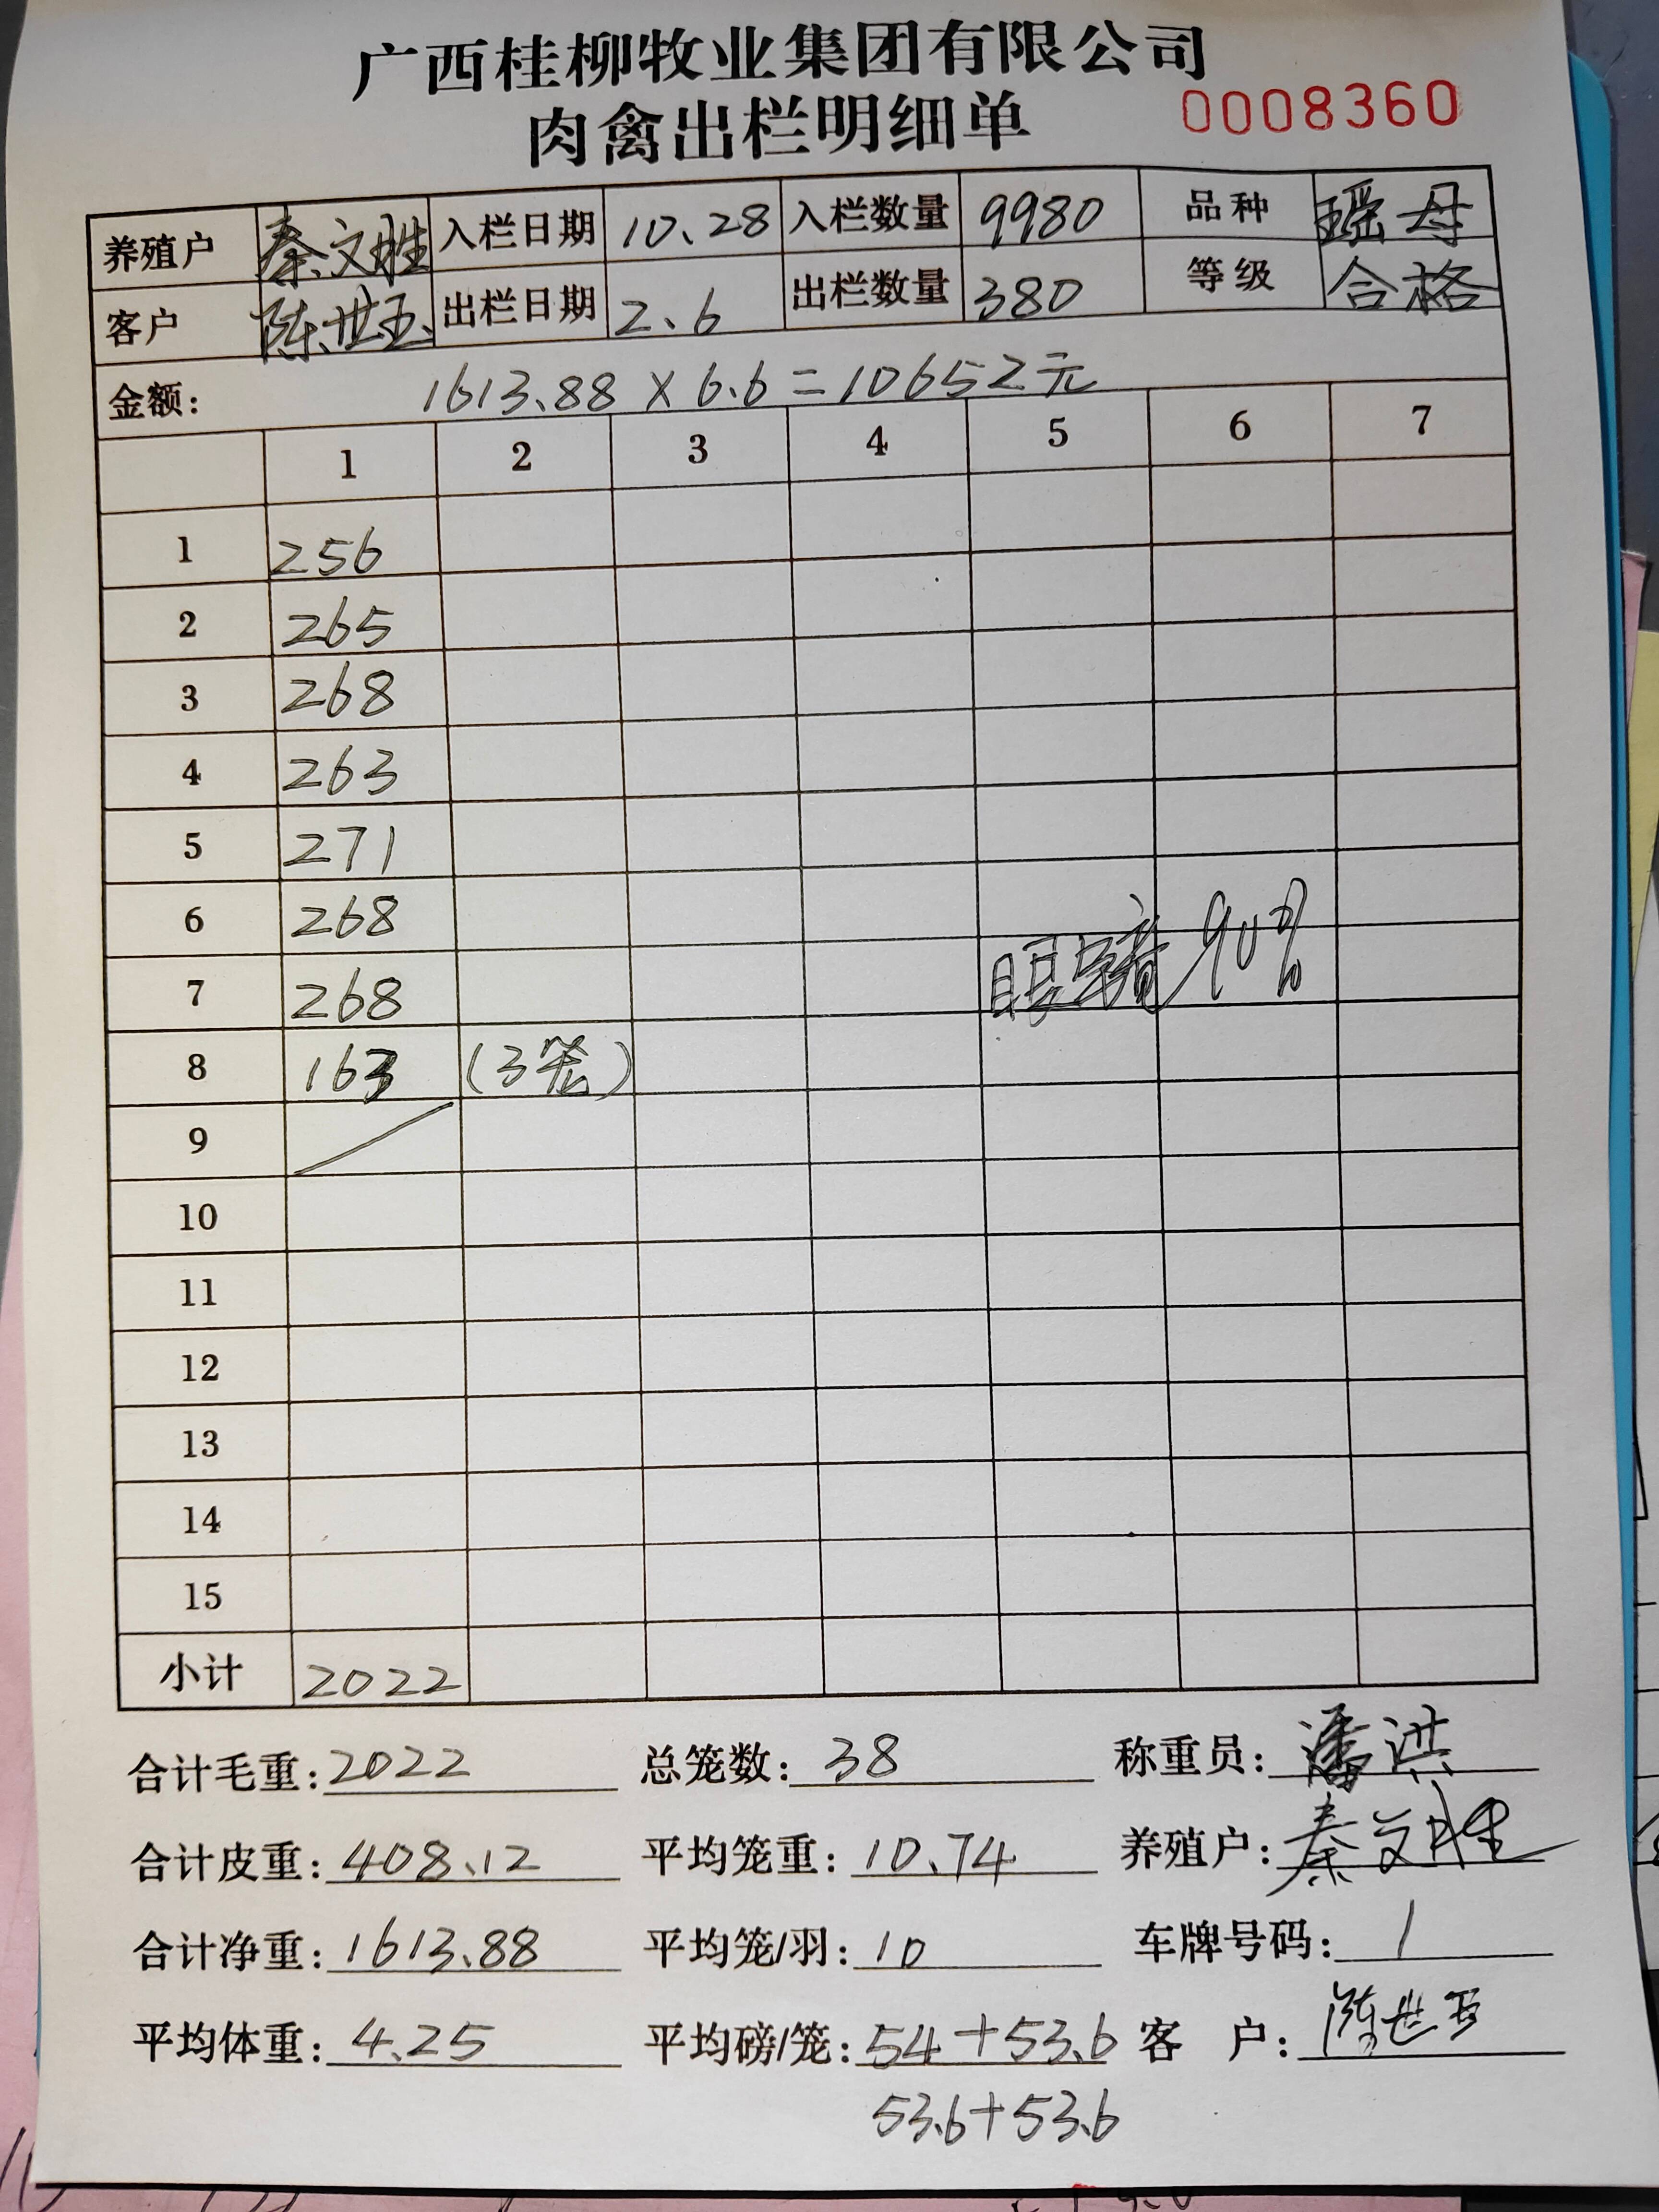 广西桂柳牧业集团有限公司
肉禽出栏明细单 0008360
养殖户 秦文胜 入栏日期 10.28 入栏数量 9980 品种 瑶母
客户 陈世玉 出栏日期 2.6 出栏数量 380 等级 合格
金额: 1613.88 × 6.6 = 10652元
1 2 3 4 5 6 7
1 256
2 265
3 268
4 263
5 271
6 268
7 268
眼睛 90%
8 163 (3笼)
9
10
11
12
13
14
15
小计 2022
合计毛重: 2022 总笼数: 38 称重员: 潘洪
合计皮重: 408.12 平均笼重: 10.74 养殖户: 秦文胜
合计净重: 1613.88 平均笼/羽: 10 车牌号码: /
平均体重: 4.25 平均磅/笼: 54+53.6 客 户: 陈世玉
53.6+53.6